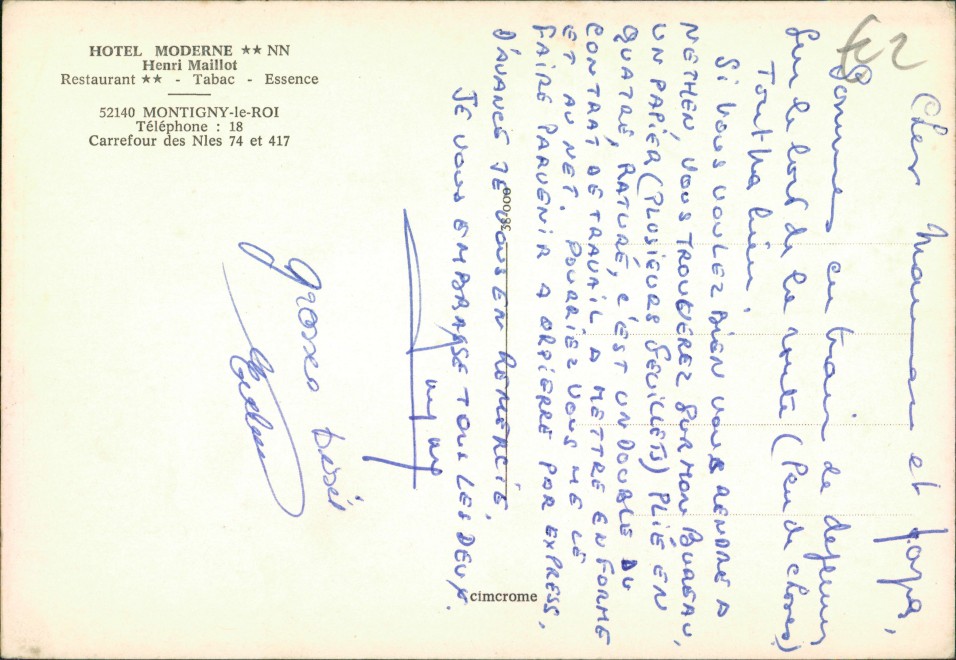 HOTEL MODERNE ★★ NN
Henri Maillot
Restaurant ★★ - Tabac - Essence
52140 MONTIGNY-le-ROI
Téléphone : 18
Carrefour des Nles 74 et 417
€2
Cher Maman et papa,
Sommes en train de dejeuner
sur le bord de la route (Peu de choses)
Tout va bien.
SI VOUS VOULEZ BIEN VOUS RENDRE A
NETHEN, VOUS TROUVEREZ SUR MON BUREAU,
UN PAPIER (PLUSIEURS FEUILLETS) PLIÉ EN
QUATRE, RATURÉ, C'EST UN DOUBLE DU
CONTRAT DE TRAVAIL A METTRE EN FORME
ET AU NET. POURRIEZ VOUS ME LE
FAIRE PARVENIR A ORPIERRE PAR EXPRESS,
D'AVANCE JE VOUS EN REMERCIE,
JE VOUS EMBRASSE TOUS LES DEUX.
Grosses bises
387000
cimcrome